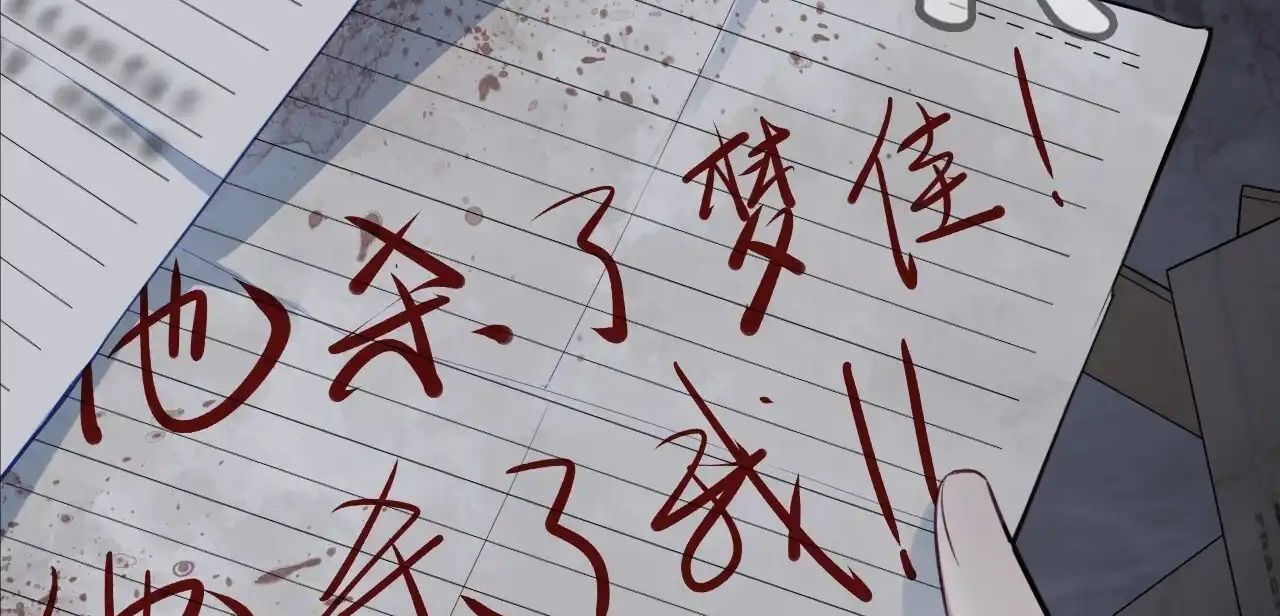 他杀了梦佳！
他杀了我！！